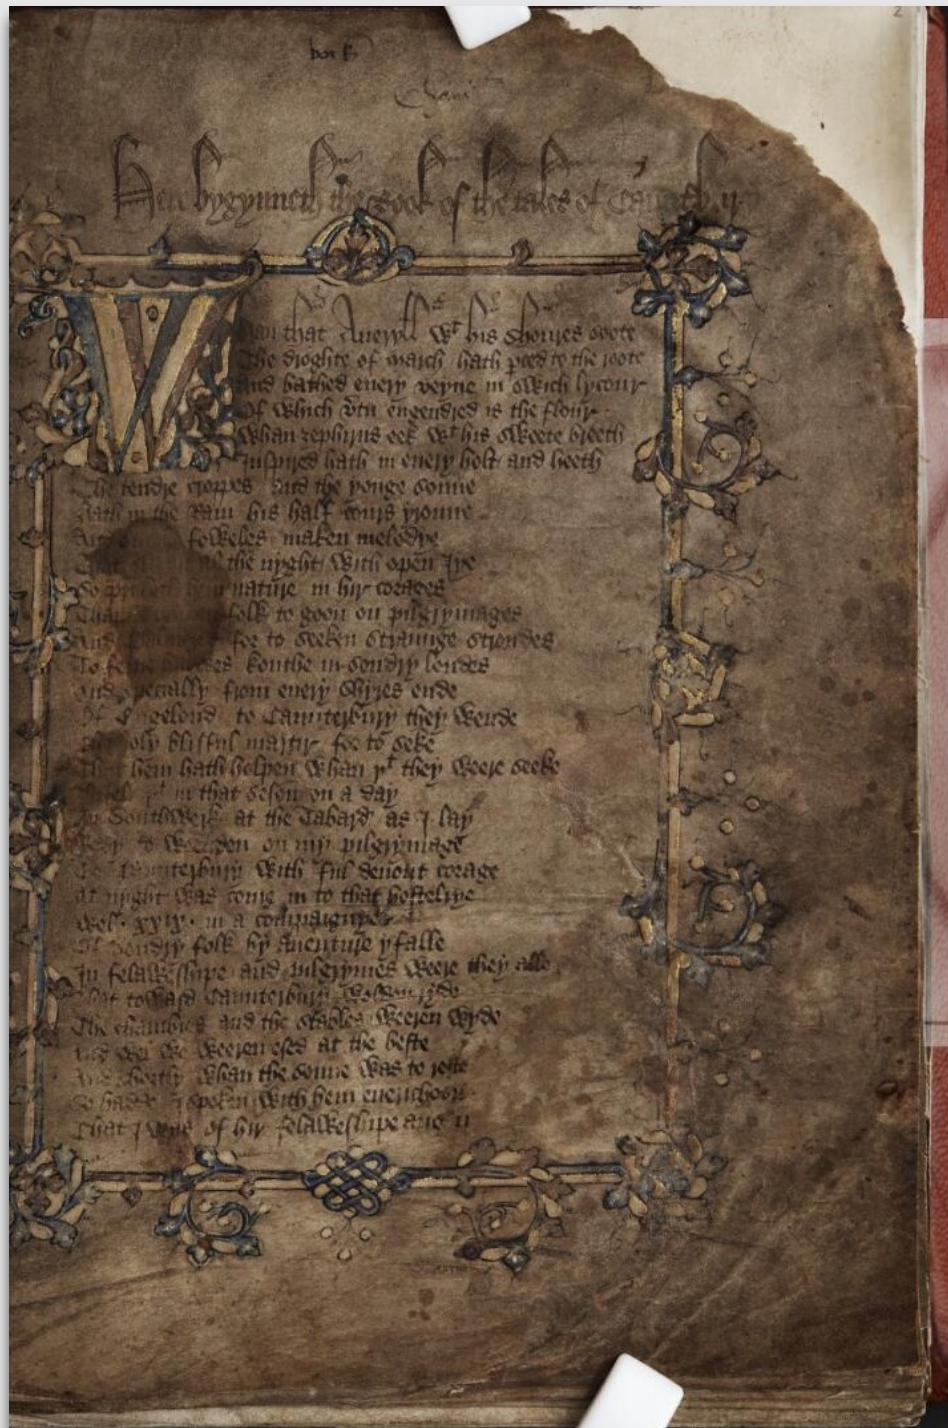 2
Here bygynneth the Book of the tales of Caunt͛b͛ury
Whan that Aueryll wt his shoures soote
The droghte of march hath ꝑced to the roote
And bathed euery veyne in swich lycour
Of which v͛tu engendred is the flour
Whan zephirus eek wt his sweete breeth
Inspired hath in euery holt and heeth
The tendre croppes and the yonge sonne
hath in the Ram his half cours yronne
And foweles maken melodye
That the nyght with open Iye
So hem nature in hir corages
folk to goon on pilgrymages
And for to seeken straunge strondes
To ferne halwes kouthe in sondry londes
And specially from euery shyres ende
Of Engelond to Caunterbury they wende
The holy blisful martir for to seke
That hem hath holpen whan þt they weere seeke
þt in that seson on a day
In Southwerk at the Tabard as I lay
Redy to weenden on my pilgrymage
To Caunterbury with ful deuout corage
At nyght was come in to that hostelrye
wel xxix in a compaignye
Of sondry folk by auenture yfalle
In felaweshipe and pilgrymes weere they alle
That toward Caunterbury wolden ryde
The chambres and the stables weeren wyde
And wel we weeren esed at the beste
And shortly whan the sonne was to reste
So hadde I spoken with hem euerichoon
That I was of hir felaweshipe anon